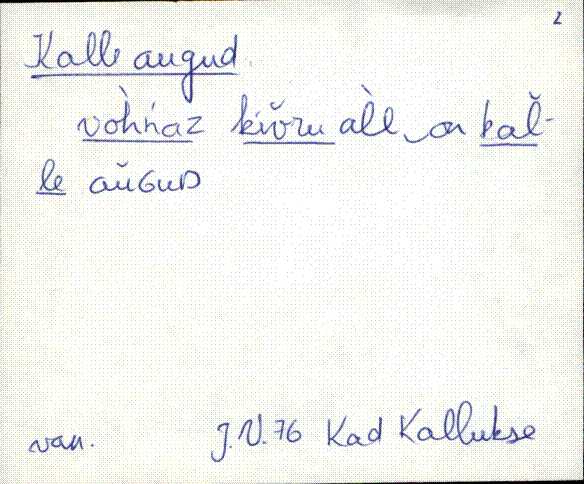 2
Kalle augud
vòhńaz kiv̆ru àlĺ, on kaľ-
le aŭGuD
van. J.V.76 Kad Kallukse